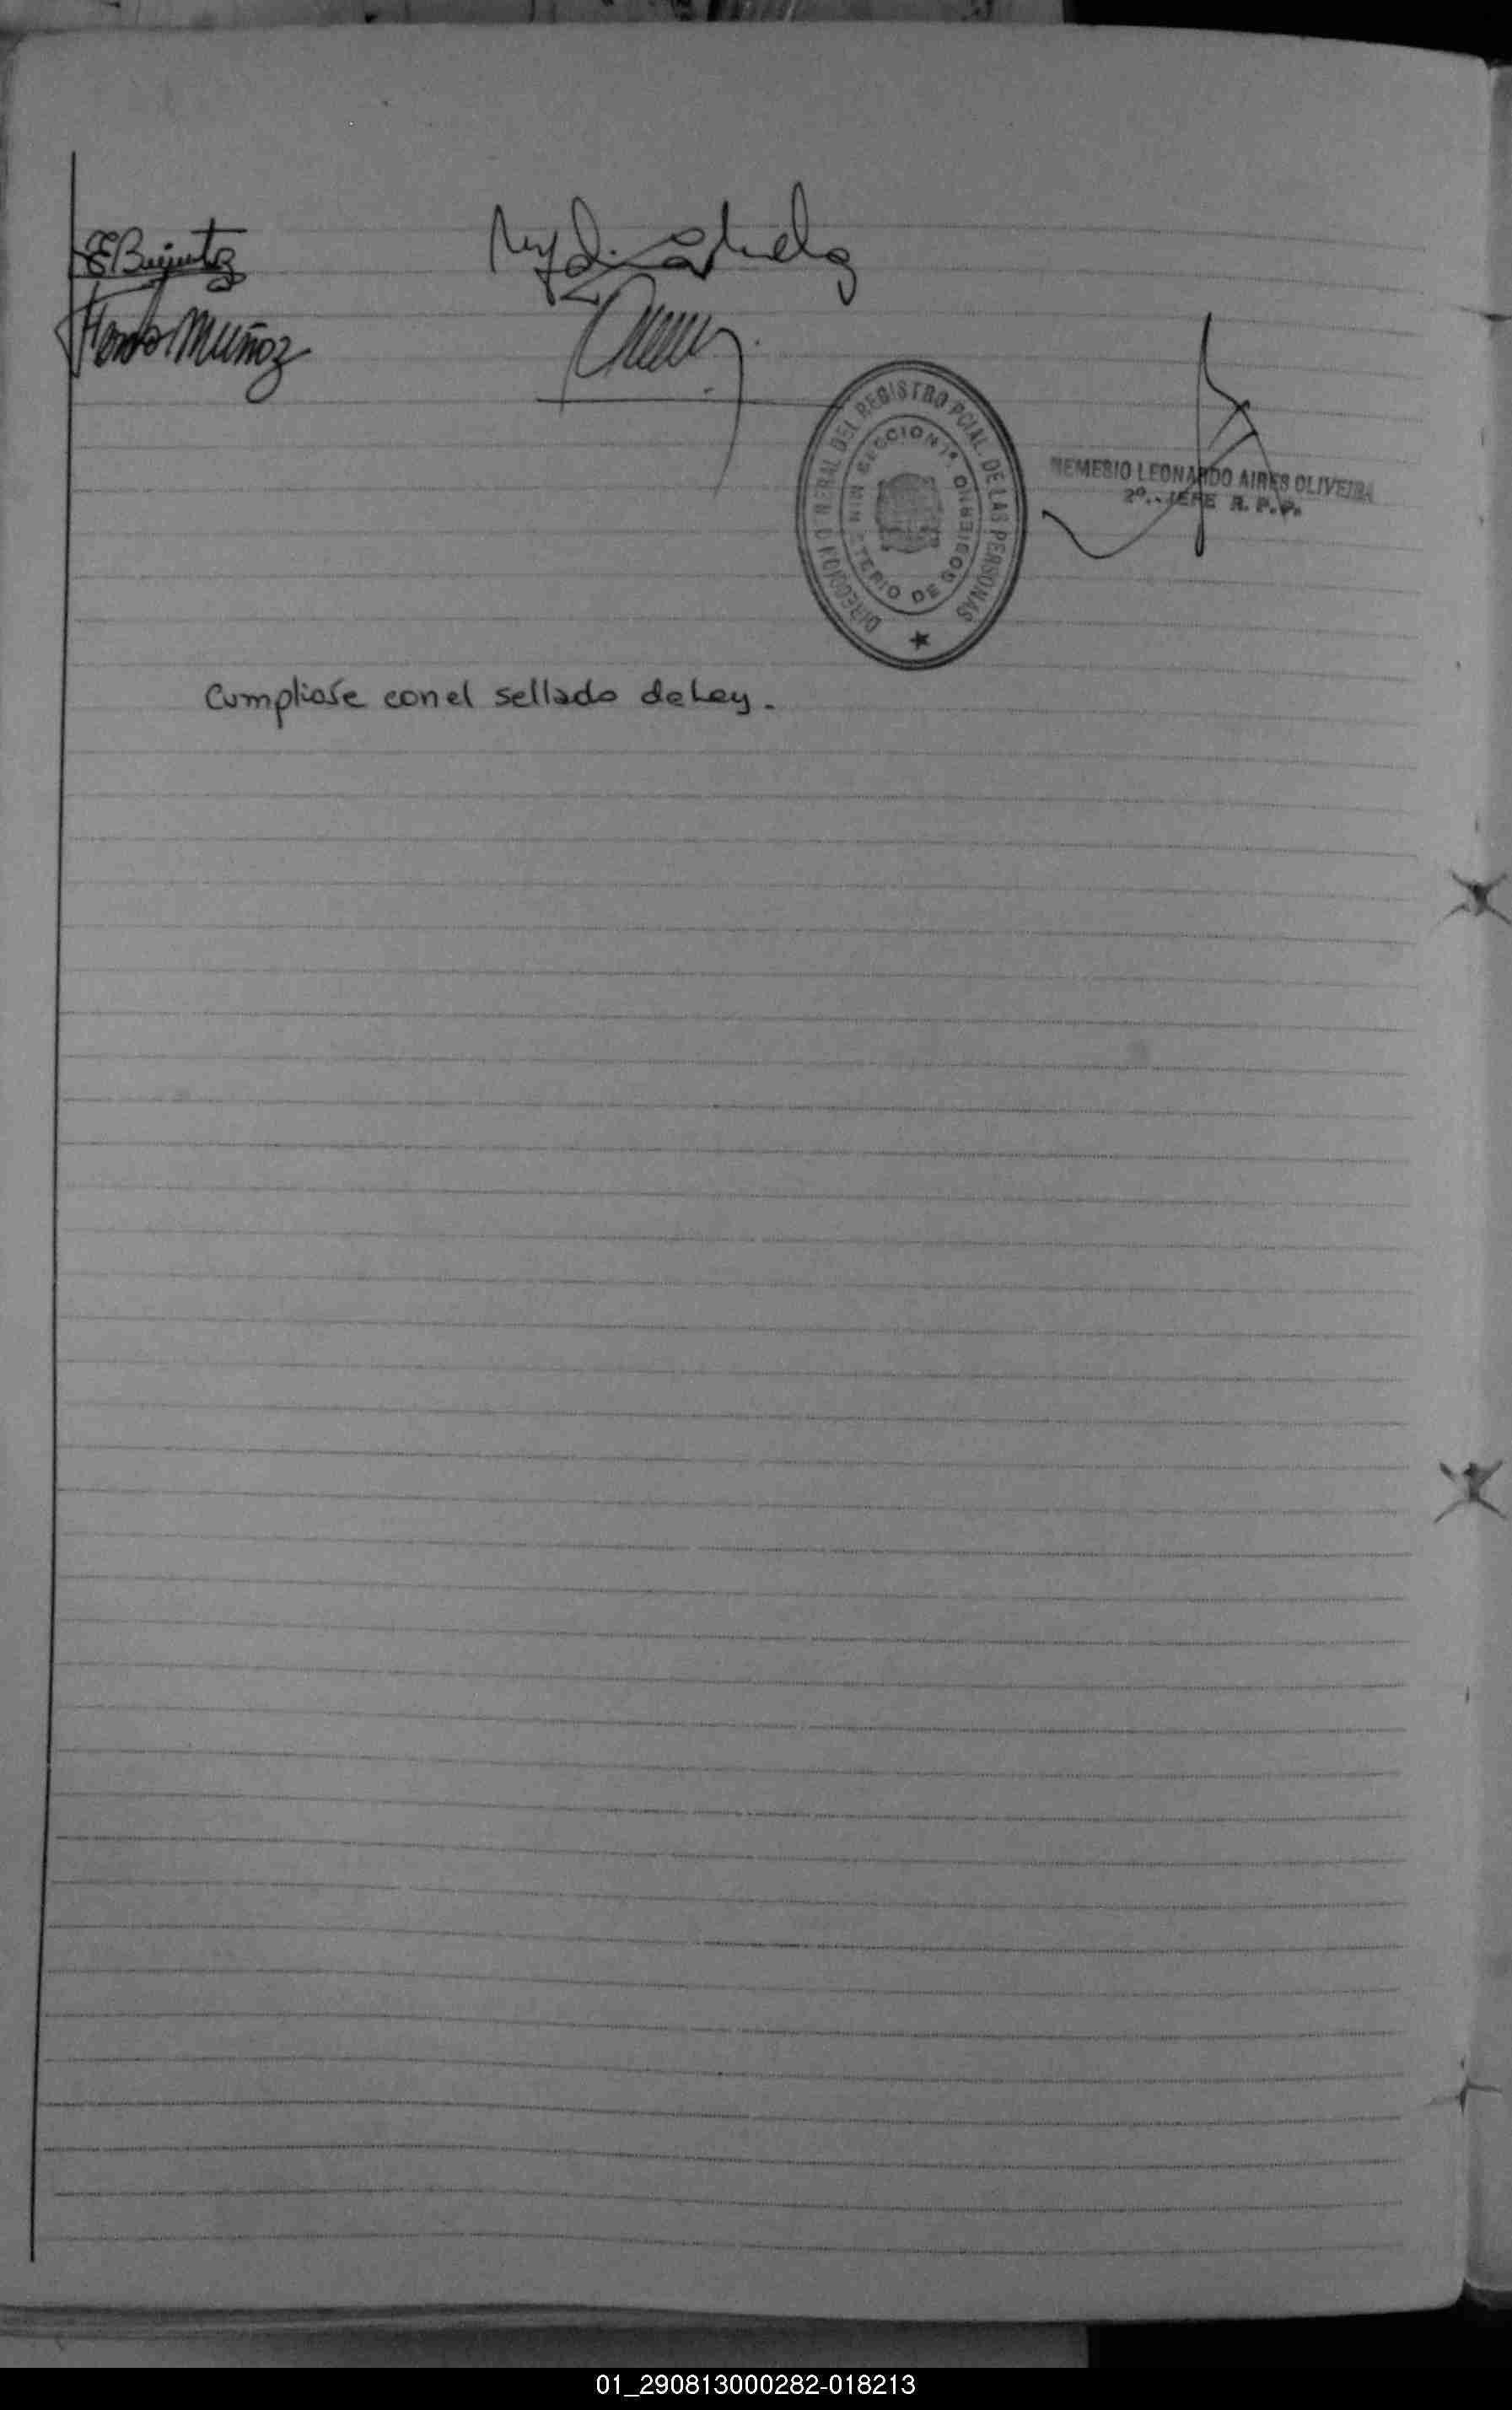 Muñoz
DIRECCION GENERAL DEL REGISTRO PCIAL. DE LAS PERSONAS
SECCION 1ª.
MINISTERIO DE GOBIERNO
NEMESIO LEONARDO AIRES OLIVEIRA
2º. - JEFE R. P. P.
Cumpliose con el sellado de Ley.
01_290813000282-018213